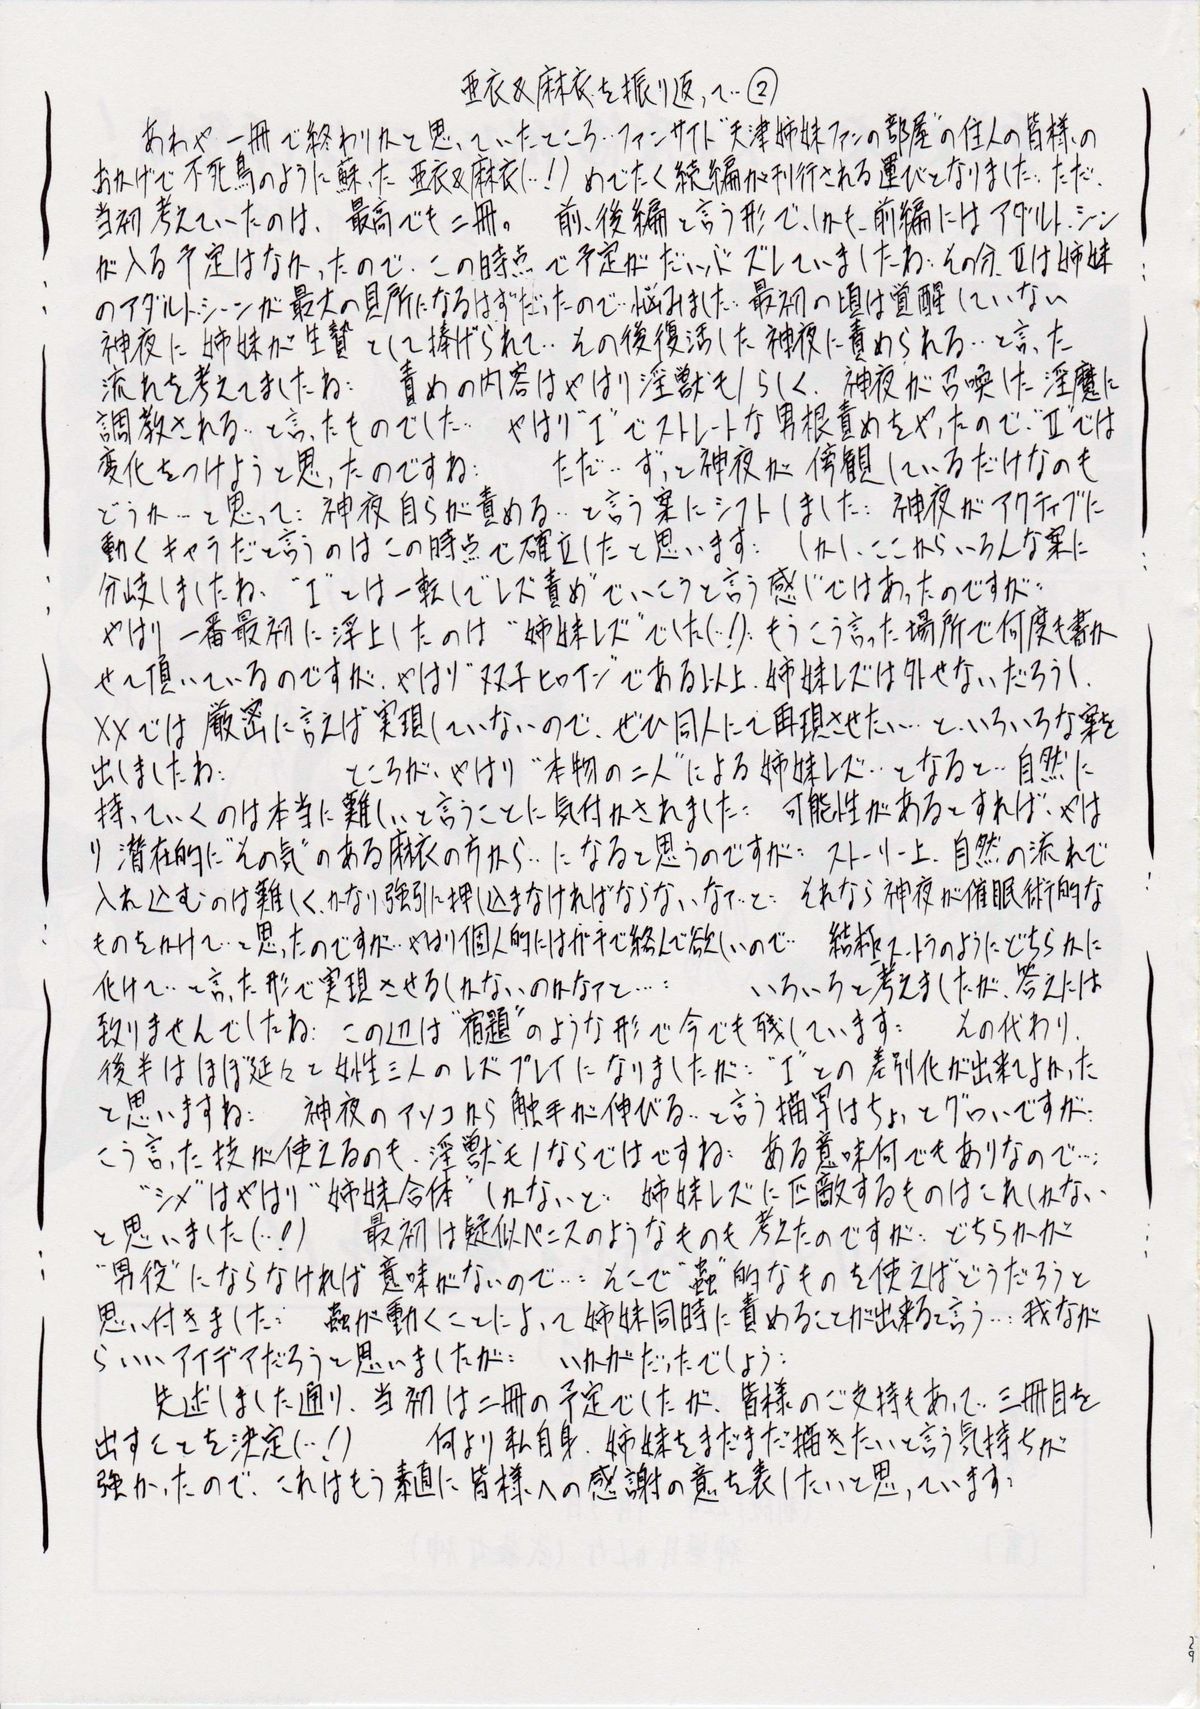 亜衣&麻衣を振り返って‥②
あわや一冊で終わりかと思っていたところ‥ファンサイト“天津姉妹ファンの部屋”の住人の皆様の
おかげで不死鳥のように蘇った 亜衣&麻衣(‥!) めでたく続編が刊行される運びとなりました‥ただ、
当初考えていたのは、最高でも二冊。 前、後編と言う形で、しかも、前編にはアダルトシーン
が入る予定はなかったので、この時点で予定がだいぶズレていましたね‥その分、Ⅱは姉妹
のアダルトシーンが最大の見所になるはずだったので‥悩みました‥最初の頃は覚醒していない
神夜に姉妹が生贄として捧げられて‥その後復活した神夜に責められる‥と言った
流れを考えてましたね‥ 責めの内容はやはり淫獣モノらしく、神夜が召喚した淫魔に
調教される‥と言ったものでした‥ やはり“Ⅰ”でストレートな男根責めをやったので‥“Ⅱ”では
変化をつけようと思ったのですね‥ ただ‥ずっと神夜が傍観しているだけなのも
どうか‥と思って‥神夜自らが責める‥と言う案にシフトしました‥神夜がアクティブに
動くキャラだと言うのはこの時点で確立したと思います‥ しかし、ここからいろんな案に
分岐しましたね、“Ⅰ”とは一転して“レズ責め”でいこうと言う感じではあったのですが‥
やはり一番最初に浮上したのは“姉妹レズ”でした(‥!)‥もうこう言った場所で何度も書か
せて頂いているのですが、やはり“双子ヒロイン”である以上、姉妹レズは外せないだろうし、
XXでは厳密に言えば実現していないので、ぜひ同人にて再現させたい‥と、いろいろな案を
出しましたね‥ ところが、やはり“本物の二人”による姉妹レズ‥となると‥自然に
持っていくのは本当に難しいと言うことに気付かされました‥ 可能性があるとすれば、やは
り潜在的に“その気”のある麻衣の方から‥になると思うのですが‥ ストーリー上、自然の流れで
入れ込むのは難しく、かなり強引に押し込まなければならないなァ‥と‥ それなら神夜が催眠術的な
ものをかけて‥と思ったのですが‥やはり個人的にはガチで絡んで欲しいので‥ 結極スートラのようにどちらかに
化けて‥と言った形で実現させるしかないのかなァと…‥ いろいろと考えましたが、答えには
致りませんでしたね‥ この辺は“宿題”のような形で今でも残しています‥ その代わり、
後半はほぼ延々と女性三人のレズプレイになりましたが‥“Ⅰ”との差別化が出来てよかった
と思いますね‥ 神夜のアソコから触手が伸びる‥と言う描写はちょっとグロいですが‥
こう言った技が使えるのも、淫獣モノならではですね‥ ある意味何でもありなので…‥
“シメ”はやはり“姉妹合体”しかないと‥ 姉妹レズに匹敵するものはこれしかない
と思いました(‥!) 最初は疑似ペニスのようなものも考えたのですが‥ どちらかが
“男役”にならなければ意味がないので…‥そこで“蟲”的なものを使えばどうだろうと
思い付きました‥ 蟲が動くことによって姉妹同時に責めることが出来ると言う…‥我なが
らいいアイデアだろうと思いましたが‥ いかがだったでしょう‥
先述しました通り、当初は二冊の予定でしたが、皆様のご支持もあって‥三冊目を
出すことを決定(‥!) 何より私自身、姉妹をまだまだ描きたいと言う気持ちが
強かったので、これはもう素直に皆様への感謝の意を表したいと思っています‥
29